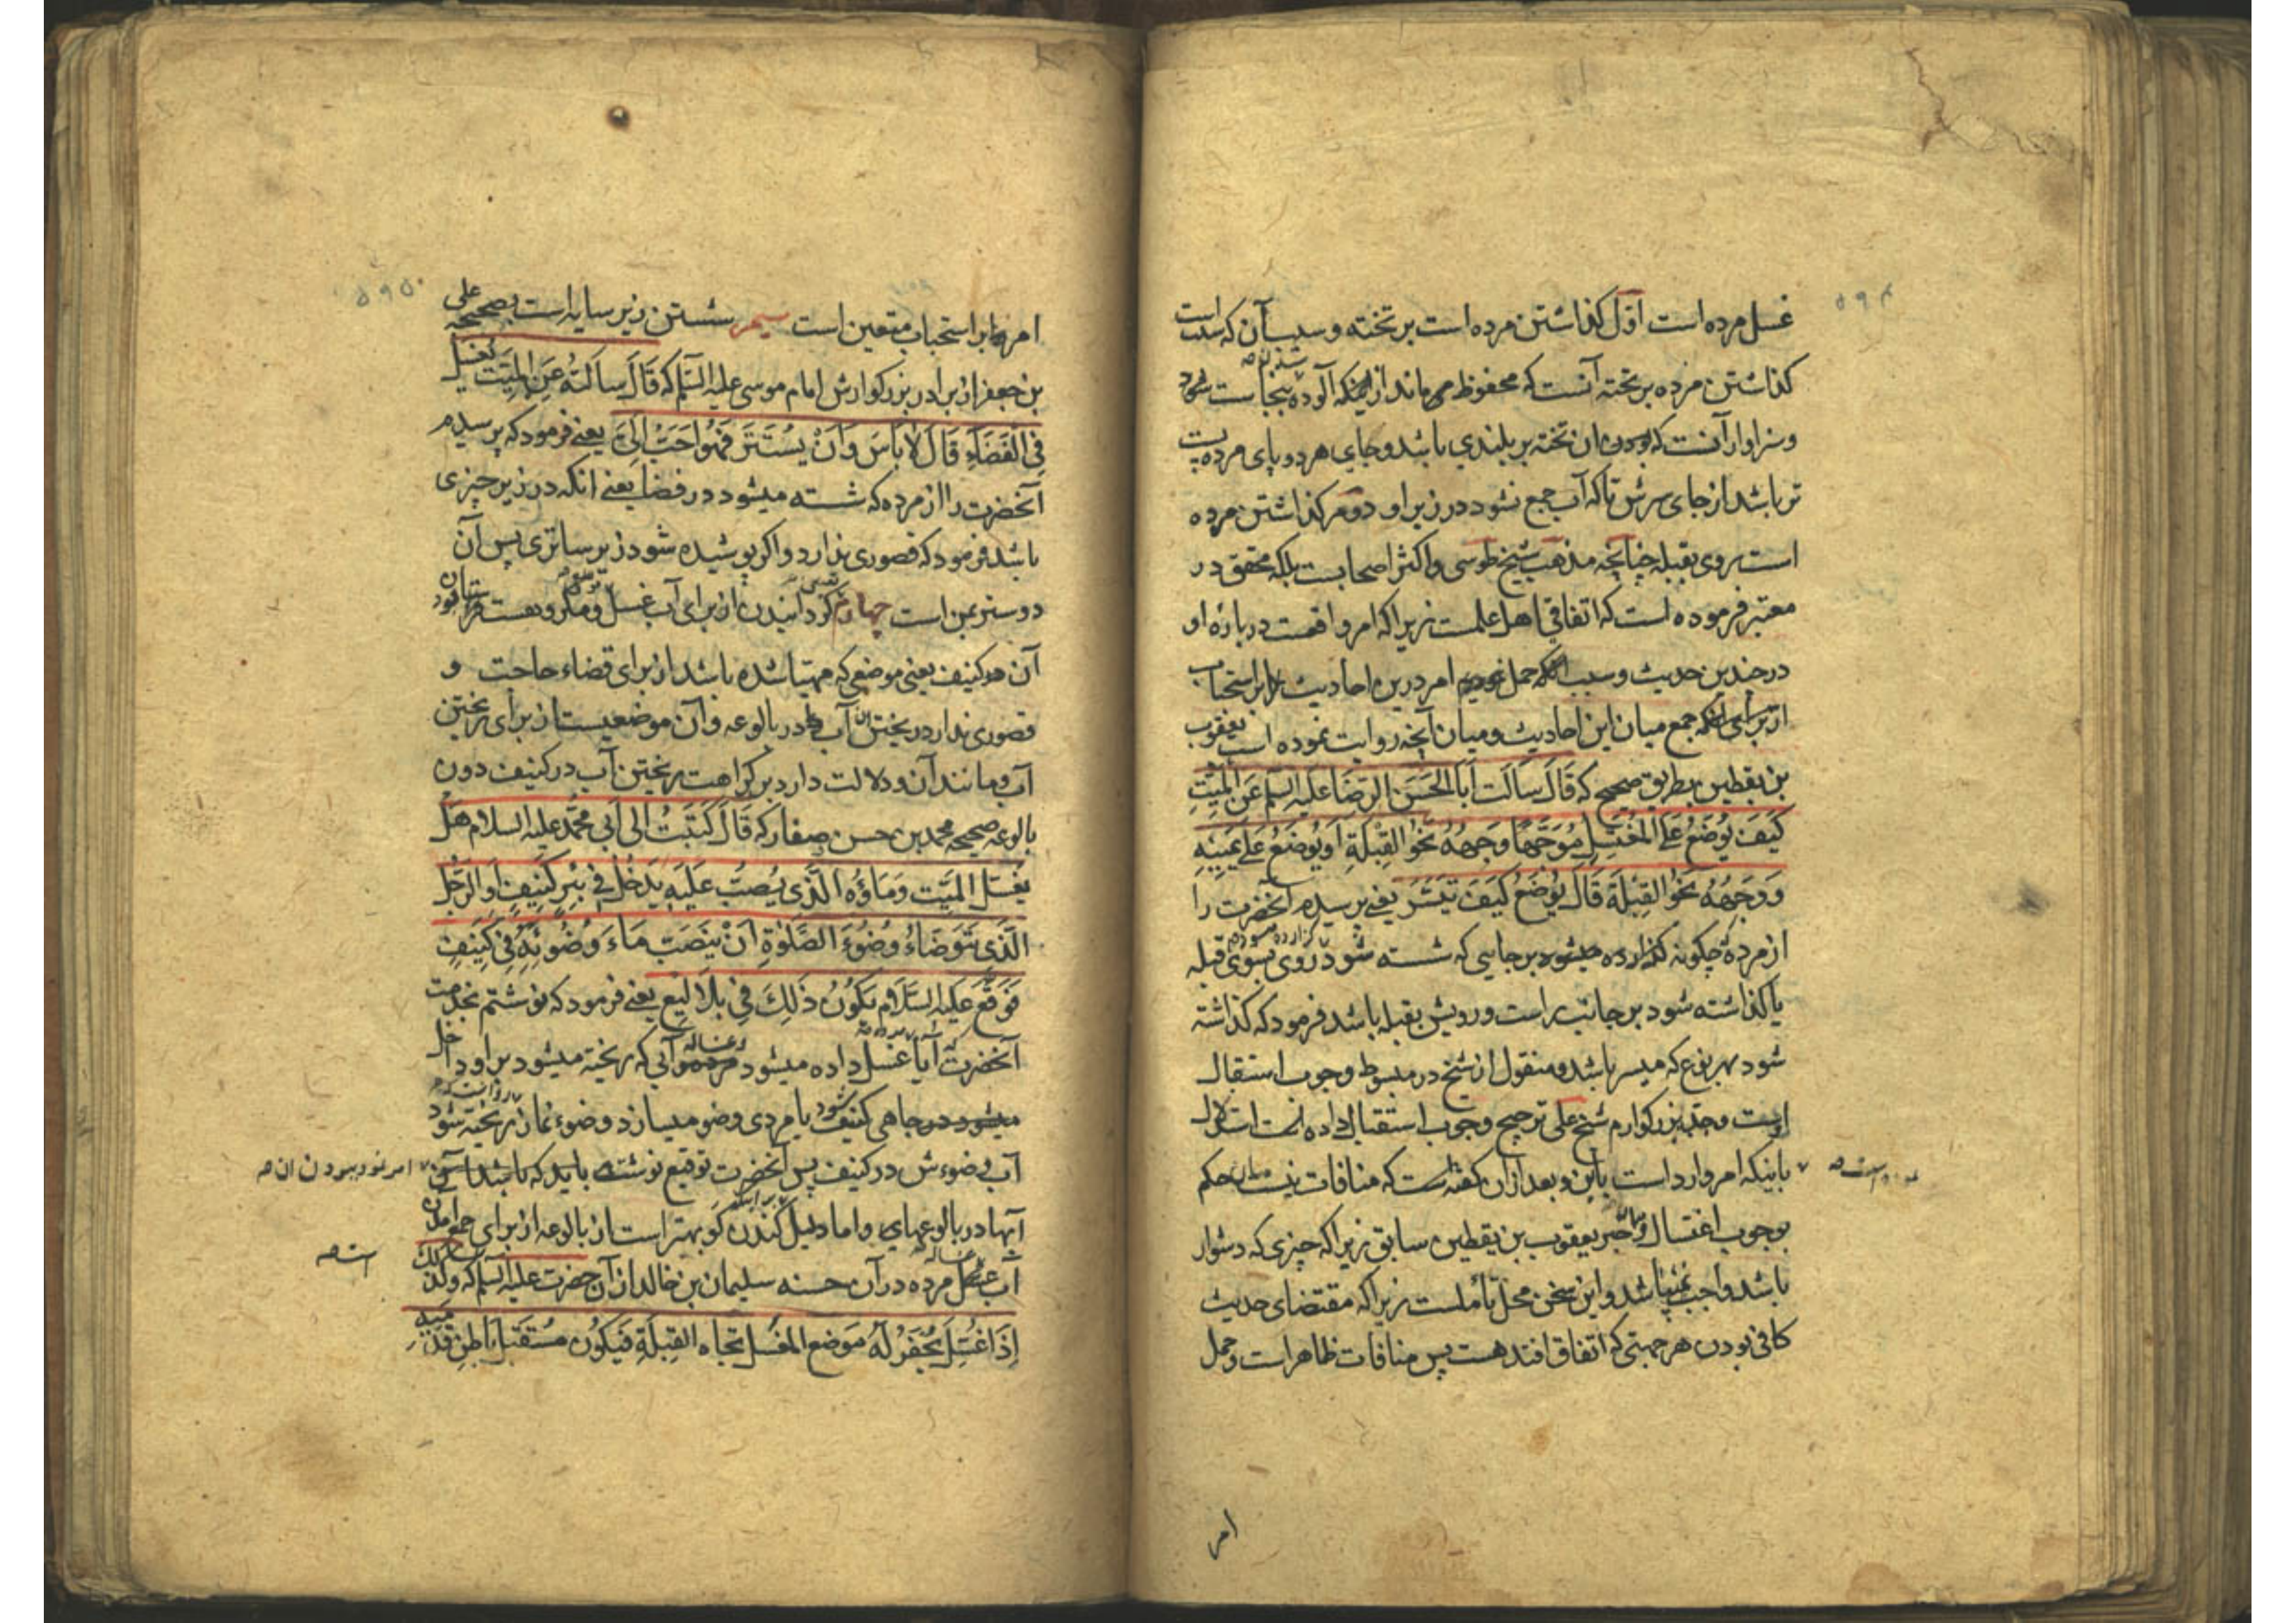 غسل مرده است اوّل گذاشتن مرده است بر تخته و سبب آن که سنت است
گذاشتن مرده بر تخته آنست که محفوظ می ماند از اینکه آلوده بنجاست شود
و سزاوار آنست که بودن آن تخته بر بلندی باشد و جای هر دو پای مرده پست
تر باشد از جای سرش تا که آب جمع نشود در زیر او دوم گذاشتن مرده
است بروی بقبله چنانچه مذهب شیخ طوسی و اکثر اصحابست بلکه محقق در
معتبر فرموده است که اتفاقی اهل علمست زیرا که امر واقعست درباره او
در چندین حدیث و سبب حمل امر درین احادیث بر استحباب
از برای جمع میان این احادیث و میان آنچه روایت نموده است یعقوب
بن یقطین بطریق صحیح که قَالَ سَاَلتُ اَبَا الحَسَنِ الرِّضَا عَلَیهِ السَّلَم عَنِ المَیِّتِ
کَیفَ یُوضَعُ عَلَی المُغتَسَلِ مُوَجَّهًا وَجهُهُ نَحوَ القِبلَةِ اَو یُوضَعُ عَلی یَمِینِهِ
وَوَجهُهُ نَحوَ القِبلَةِ قَالَ یُوضَعُ کَیفَ تَیَسَّرَ یعنی پرسیدم آنحضرت را
از مرده چگونه گذارده میشود بر جایی که شسته شود روی بسوی قبله
یا گذاشته شود بر جانب راست و رویش بقبله باشد فرمود که گذاشته
شود بهر نوع که میسر باشد و منقول از شیخ در مبسوط وجوب استقبال
است و جد بزرگوارم شیخ علی ترجیح وجوب استقبال داده است استدلال
باینکه امر وارد است باین و بعد از آن گفته است که منافات نیست میان حکم
بوجوب اغتسال و خبر یعقوب بن یقطین سابق زیرا که چیزی که دشوار
باشد واجب نمیباشد و این سخن محل تأملست زیرا که مقتضای حدیث
کافی بودن هر جهتی که اتفاق افتد هست پس منافات ظاهر است و حمل
امر
امر بر استحباب متعین است سیم شستن زیر سایه است بصحیحه علی
بن جعفر از برادر بزرگوارش امام موسی علیه السّلم که قَالَ سَاَلتُهُ عَنِ المَیِّتِ یُغسَلُ
فِی الفَضَاءِ قَالَ لَا بَاسَ وَاَنْ یُستَتَرَ فَهُوَ اَحَبُّ اِلَیَّ یعنی فرمود که پرسیدم
آنحضرت را از مرده که شسته میشود در فضا یعنی آنکه در زیر چیزی
باشد فرمود که قصوری ندارد و اگر پوشیده شود زیر ساتری پس آن
دوستر بمن است چهارم گردانیدن از برای آب غسل و مکروهست
آن کنیف یعنی موضعی که مهیّا شده باشد از برای قضاء حاجت و
قصوری ندارد ریختن آب در بالوعه و آن موضعیست از برای ریختن
آب و مانند آن و دلالت دارد بر کراهت ریختن آب در کنیف دون
بالوعه صحیحه محمد بن حسن صفار که قَالَ کَتَبتُ اِلی اَبی مُحَمَّد علیه السلام هَل
یُغسَلُ المَیِّت وَمَاؤُه الَّذی یُصَبُّ عَلَیهِ یَدخُلُ فی بِئرِ کَنِیفٍ اَوِ الرَّجُلُ
الَّذِی یَتَوَضَّاءُ وُضُوءَ الصَّلوٰةِ اَنْ یَنصَبَّ مَاءَ وَضُوئِهِ فِی کَنِیفٍ
فَوَقَّعَ عَلَیهِ السَّلَام یَکُونُ ذٰلِکَ فِی بَلَالِیعَ یعنی فرمود که نوشتم بخدمت
آنحضرت آیا غسل داده میشود مرده و آبی که ریخته میشود بر او داخل
چاهی کنیف شود یا مردی وضو میسازد وضوء نماز ریخته شود
آب وضوءش در کنیف پس آنحضرت توقیع نوشته باید که باشد
امر نمود ببودن آن
آنها در بالوعهای و اما دلیل کندن گو بهتر است از بالوعه از برای جمع
آب غسل مرده در آن حسنه سلیمان بن خالد از آن حضرت علیه السلم که وکذلک
اِذَا غُسِلَ یُحفَرُ لَهُ مَوضع المُغسَل تجاه القِبلَةِ فَیَکُون مُستَقبِلَ بَاطِنِ قَدَمَیهِ